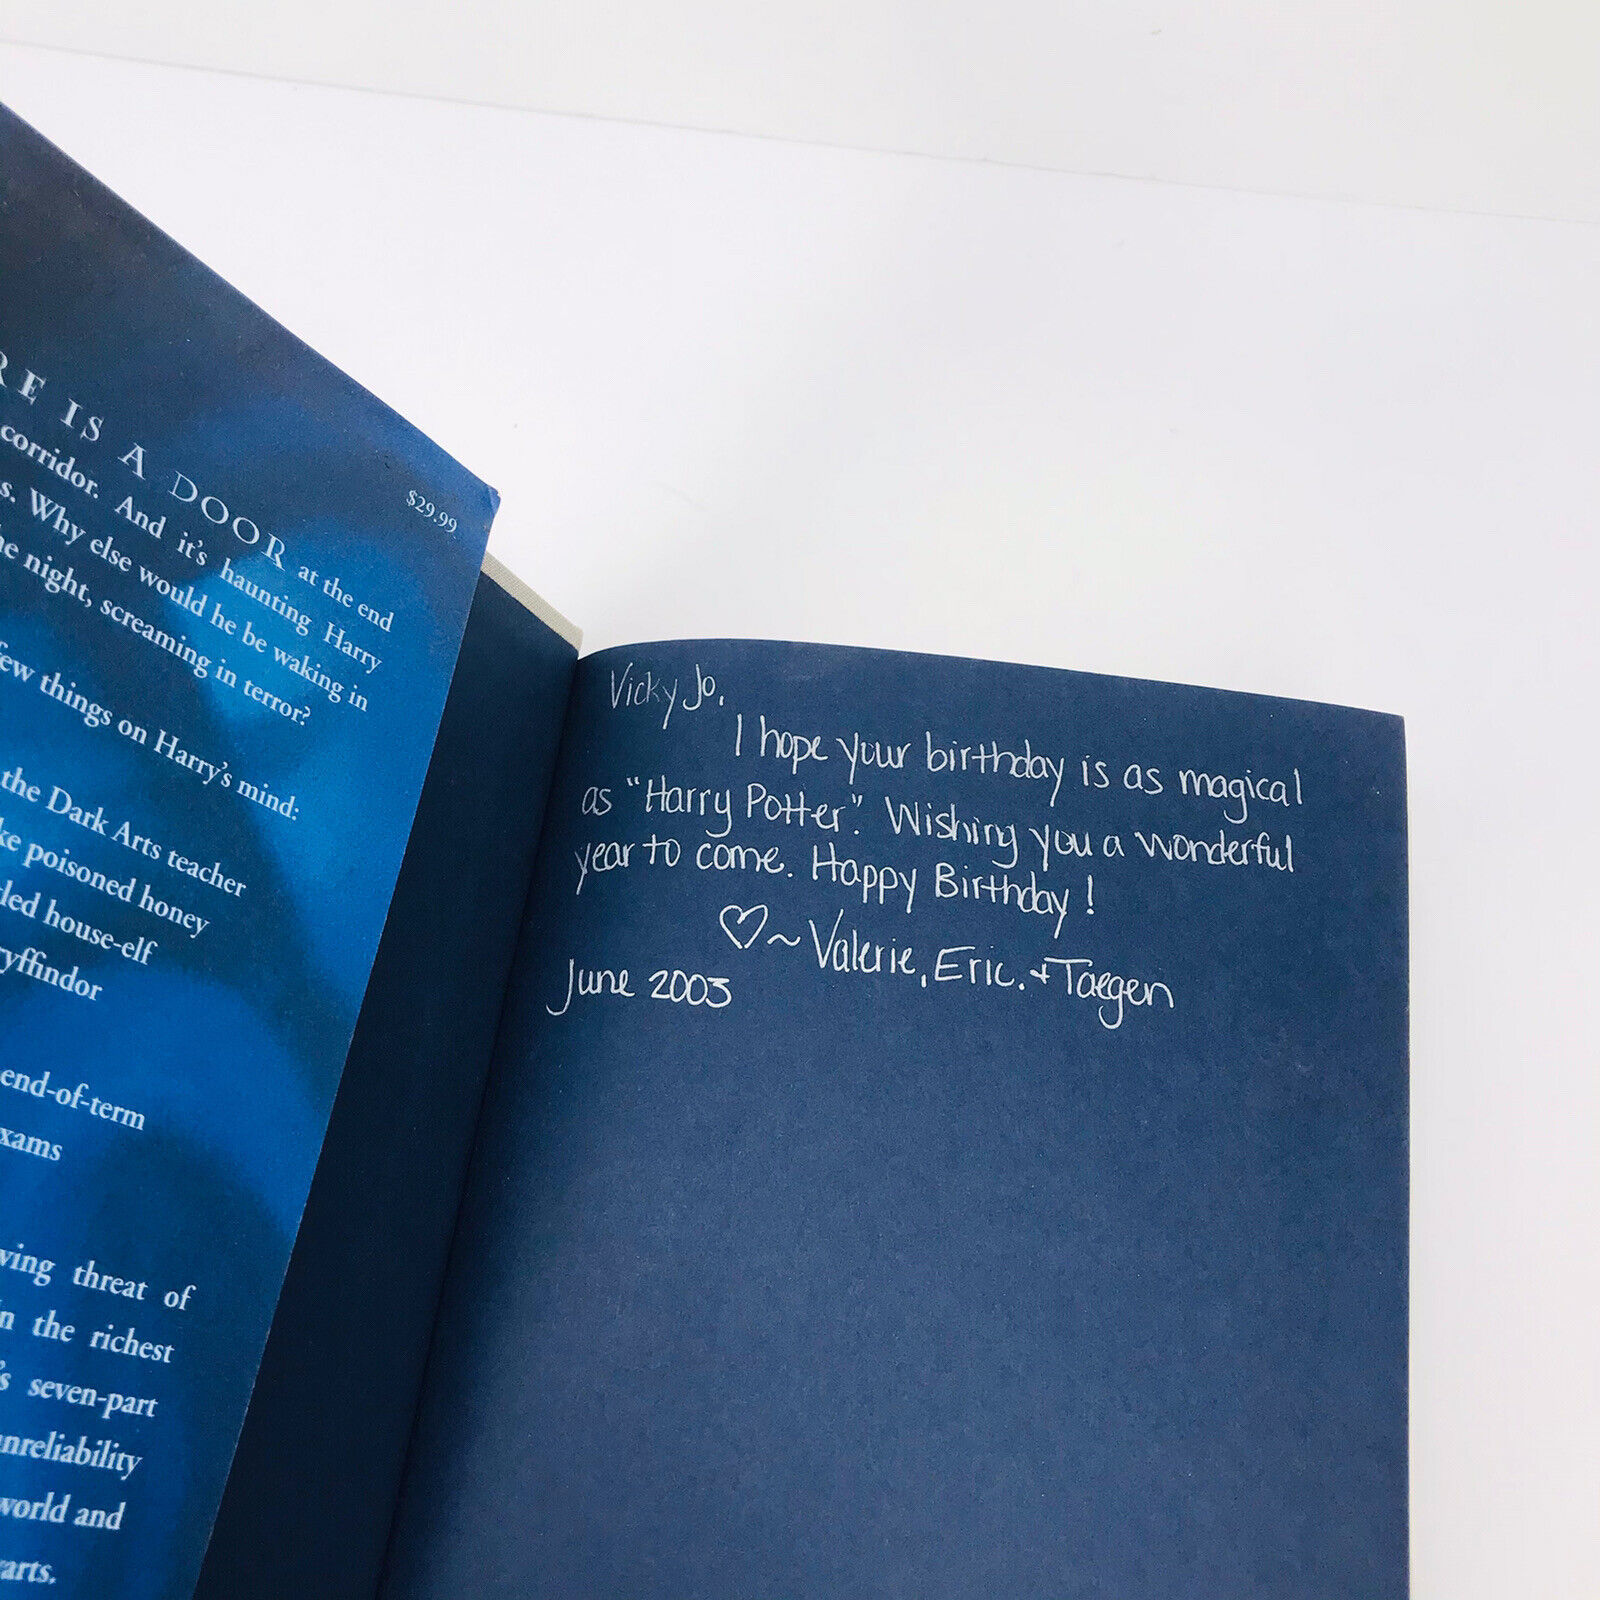 RE IS A DOOR at the end
corridor. And it's haunting Harry
s. Why else would he be waking in
he night, screaming in terror?
few things on Harry's mind:
the Dark Arts teacher
ke poisoned honey
tled house-elf
ryffindor
end-of-term
xams
ving threat of
n the richest
's seven-part
unreliability
world and
arts.
$29.99
Vicky Jo,
I hope your birthday is as magical
as "Harry Potter". Wishing you a wonderful
year to come. Happy Birthday!
♡~ Valerie, Eric. + Taegen
June 2003